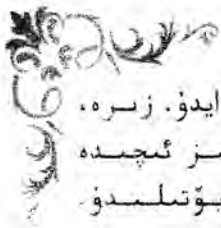 ايدۇ. زىرە،
ـىز ئىچىدە
ـيۆتىلىدۇ.